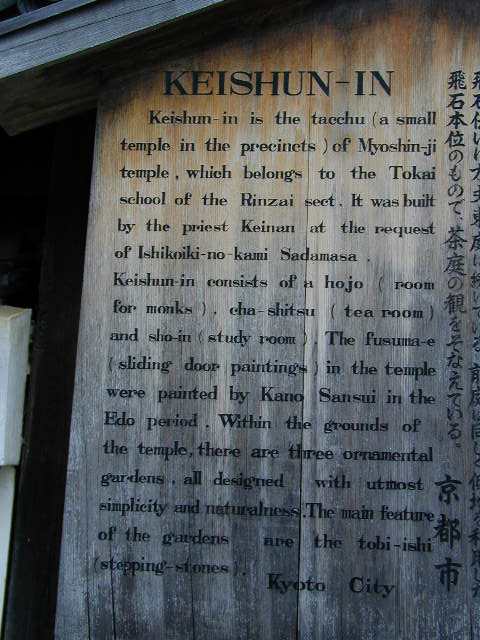 KEISHUN-IN
Keishun-in is the tacchu (a small
temple in the precincts) of Myoshin-ji
temple, which belongs to the Tokai
school of the Rinzai sect. It was built
by the priest Keinan at the request
of Ishikoiki-no-kami Sadamasa.
Keishun-in consists of a hojo (room
for monks), cha-shitsu (tea room)
and sho-in (study room). The fusuma-e
(sliding door paintings) in the temple
were painted by Kano Sansui in the
Edo period. Within the grounds of
the temple, there are three ornamental
gardens, all designed with utmost
simplicity and naturalness. The main feature
of the gardens are the tobi-ishi
(stepping-stones).
Kyoto City
飛石本位のもので、茶庭の観をそなえている。
京都市